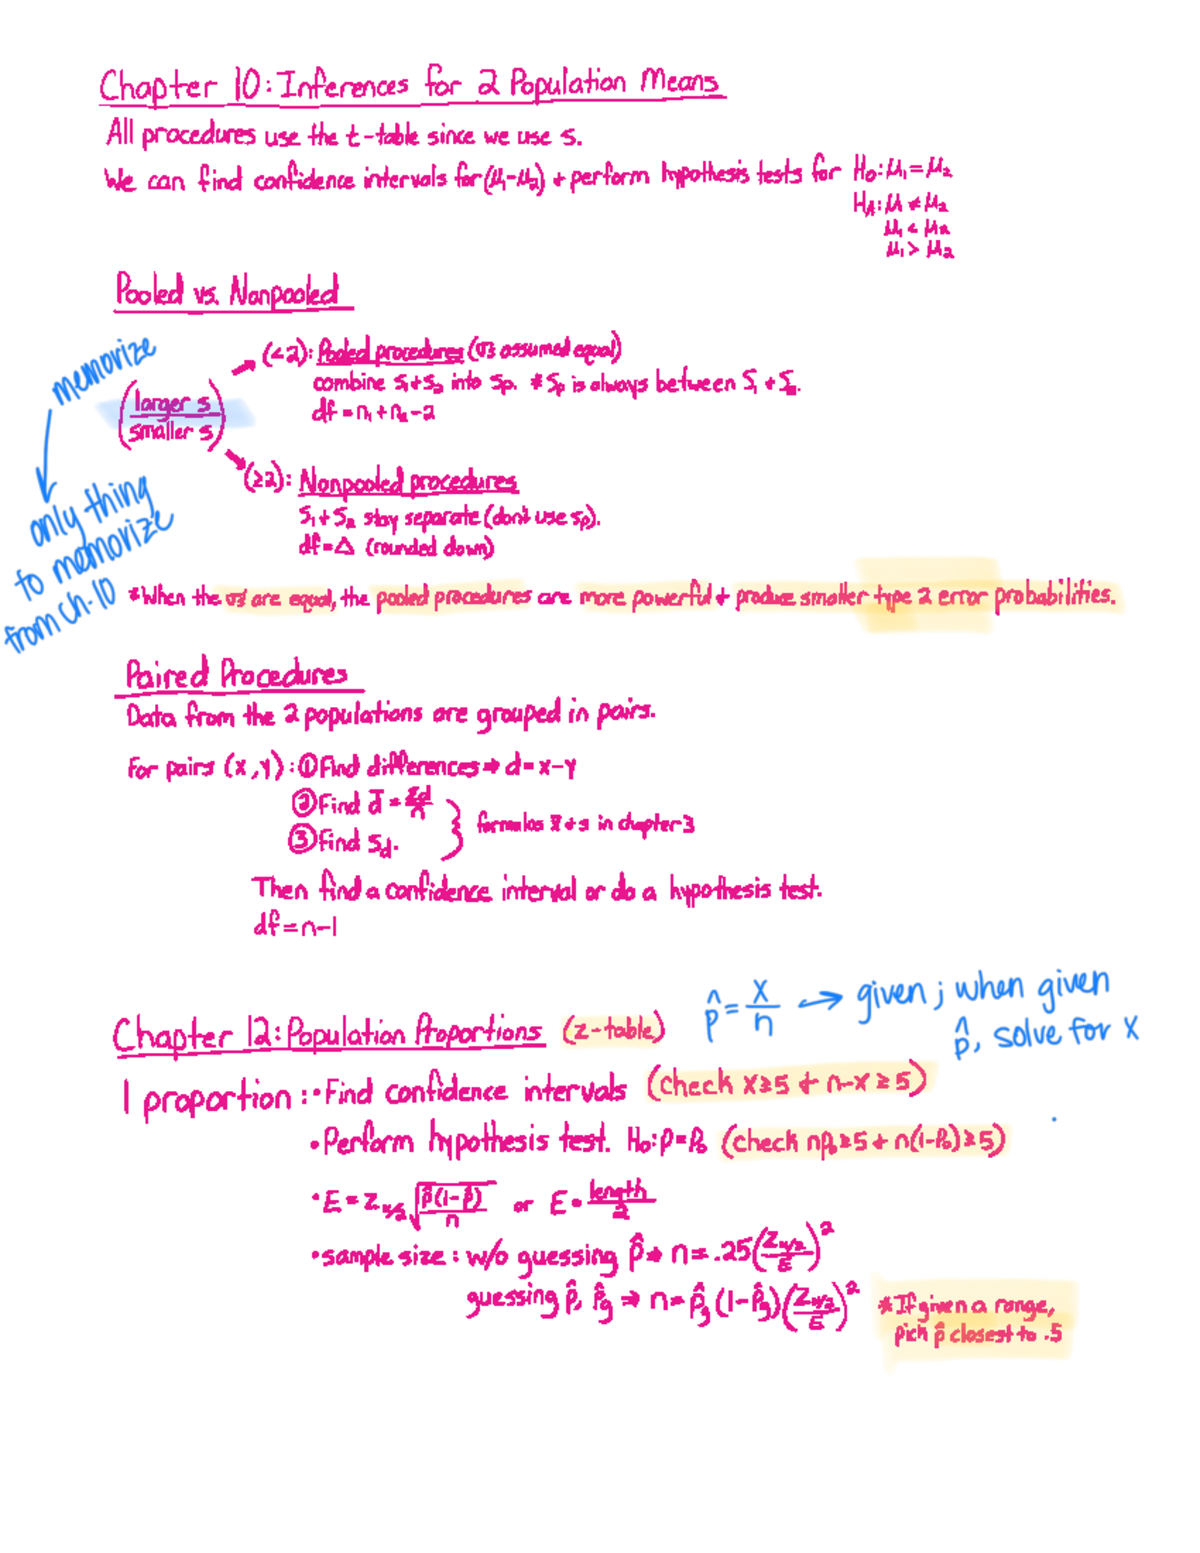 Chapter 10: Inferences for 2 Population Means
All procedures use the t-table since we use s.
We can find confidence intervals for (μ₁-μ₂) + perform hypothesis tests for H₀: μ₁ = μ₂
Hₐ: μ ≠ μ₂
μ₁ < μ₂
μ₁ > μ₂
Pooled vs. Nonpooled
memorize
only thing
to memorize
from ch. 10
(larger s / smaller s)
(<2): Pooled procedures (σs assumed equal)
combine s₁ + s₂ into sₚ. * sₚ is always between s₁ + s₂.
df = n₁ + n₂ - 2
(≥2): Nonpooled procedures
s₁ + s₂ stay separate (don't use sₚ).
df = Δ (rounded down)
*When the σs' are equal, the pooled procedures are more powerful + produce smaller type 2 error probabilities.
Paired Procedures
Data from the 2 populations are grouped in pairs.
For pairs (x,y): ① Find differences ⇒ d = x-y
② Find d̄ = Σd/n
③ Find s_d.
formulas x̄ + s in chapter 3
Then find a confidence interval or do a hypothesis test.
df = n-1
p̂ = x/n → given; when given
p̂, solve for x
Chapter 12: Population Proportions (z-table)
1 proportion: • Find confidence intervals (check x ≥ 5 + n-x ≥ 5)
• Perform hypothesis test. H₀: p = p₀ (check np₀ ≥ 5 + n(1-p₀) ≥ 5)
• E = z_α/2 √(p̂(1-p̂)/n) or E = length/2
• sample size: w/o guessing p̂ ⇒ n = .25(z_α/2 / E)²
guessing p̂, p̂g ⇒ n = p̂g (1-p̂g)(z_α/2 / E)²
* If given a range,
pick p̂ closest to .5